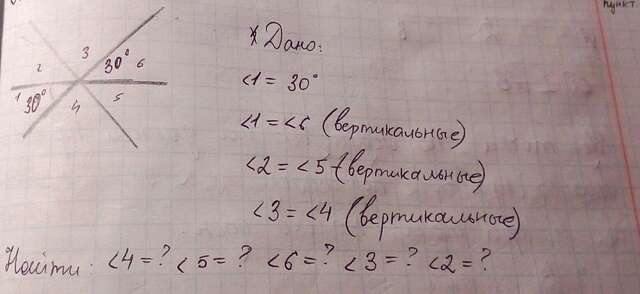 пункт
3
2
30°
6
1
30°
4
5
Дано:
<1 = 30°
<1 = <6 (вертикальные)
<2 = <5 (вертикальные)
<3 = <4 (вертикальные)
Найти: <4 = ? <5 = ? <6 = ? <3 = ? <2 = ?